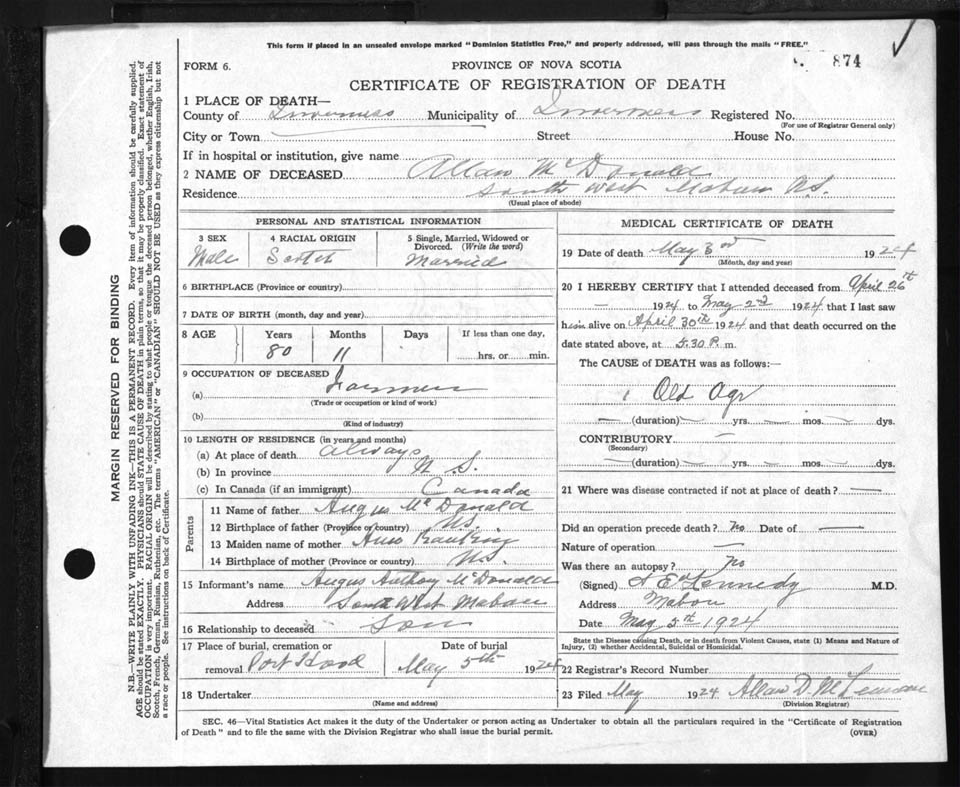 This form if placed in an unsealed envelope marked "Dominion Statistics Free," and properly addressed, will pass through the mails "FREE."
FORM 6. PROVINCE OF NOVA SCOTIA 874
CERTIFICATE OF REGISTRATION OF DEATH
1 PLACE OF DEATH—
County of Inverness Municipality of Inverness Registered No.
(For use of Registrar General only)
City or Town Street House No.
If in hospital or institution, give name
2 NAME OF DECEASED Allan McDonald
Residence South West Mabou N.S.
(Usual place of abode)
PERSONAL AND STATISTICAL INFORMATION
3 SEX 4 RACIAL ORIGIN 5 Single, Married, Widowed or Divorced. (Write the word)
Male Scotch Married
6 BIRTHPLACE (Province or country)
7 DATE OF BIRTH (month, day and year)
8 AGE Years Months Days If less than one day,
80 11 hrs. or min.
9 OCCUPATION OF DECEASED
(a) Farmer
(Trade or occupation or kind of work)
(b)
(Kind of industry)
10 LENGTH OF RESIDENCE (in years and months)
(a) At place of death always
(b) In province N S.
(c) In Canada (if an immigrant) Canada
Parents
11 Name of father Angus McDonald
12 Birthplace of father (Province or country) N.S.
13 Maiden name of mother Rankin
14 Birthplace of mother (Province or country) N.S.
15 Informant's name Angus Anthony McDonald
Address South West Mabou
16 Relationship to deceased Son
17 Place of burial, cremation or Date of burial
removal Port Hood May 5th 1924
18 Undertaker
(Name and address)
MEDICAL CERTIFICATE OF DEATH
19 Date of death May 3rd 1924
(Month, day and year)
20 I HEREBY CERTIFY that I attended deceased from April 26th
1924 to May 2nd 1924 that I last saw
him alive on April 30th 1924 and that death occurred on the
date stated above, at 5.30 P. m.
The CAUSE OF DEATH was as follows:—
Old Age
(duration) yrs. mos. dys.
CONTRIBUTORY
(Secondary)
(duration) yrs. mos. dys.
21 Where was disease contracted if not at place of death?
Did an operation precede death? No Date of
Nature of operation
Was there an autopsy? No
(Signed) Kennedy M.D.
Address Mabou
Date May 5th 1924
State the Disease causing Death, or in death from Violent Causes, state (1) Means and Nature of
Injury, (2) whether Accidental, Suicidal or Homicidal.
22 Registrar's Record Number
23 Filed May 1924 Allan D.
(Division Registrar)
SEC. 46—Vital Statistics Act makes it the duty of the Undertaker or person acting as Undertaker to obtain all the particulars required in the "Certificate of Registration
of Death" and to file the same with the Division Registrar who shall issue the burial permit. (OVER)
MARGIN RESERVED FOR BINDING
N.B.—WRITE PLAINLY WITH UNFADING INK—THIS IS A PERMANENT RECORD. Every item of information should be carefully supplied.
AGE should be stated EXACTLY. PHYSICIANS should STATE CAUSE OF DEATH in plain terms, so that it may be properly classified. Exact statement of
OCCUPATION is very important. RACIAL ORIGIN will be described by stating to what people or tongue the deceased person belonged, whether English, Irish,
Scotch, French, German, Russian, Ruthenian, etc. The terms "AMERICAN" or "CANADIAN" SHOULD NOT BE USED as they express citizenship but not
a race or people. See instructions on back of Certificate.